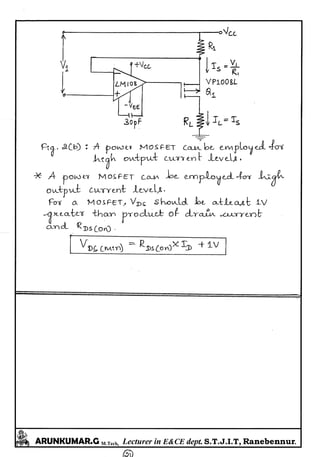 +VCC
R1
V1
+VCC
IS = V1/R1
LM108
VP1008L
Q1
-VEE
30pF
RL
IL = IS
Fig. 2(b) : A power MOSFET can be employed for
high output current levels.
* A power MOSFET can be employed for high
output current levels.
For a MOSFET, VDS should be atleast 1V
greater than product of drain current
and RDS(on).
VDS(min) = RDS(on) × ID + 1V
ARUNKUMAR.G M.Tech, Lecturer in E&CE dept. S.T.J.I.T, Ranebennur.